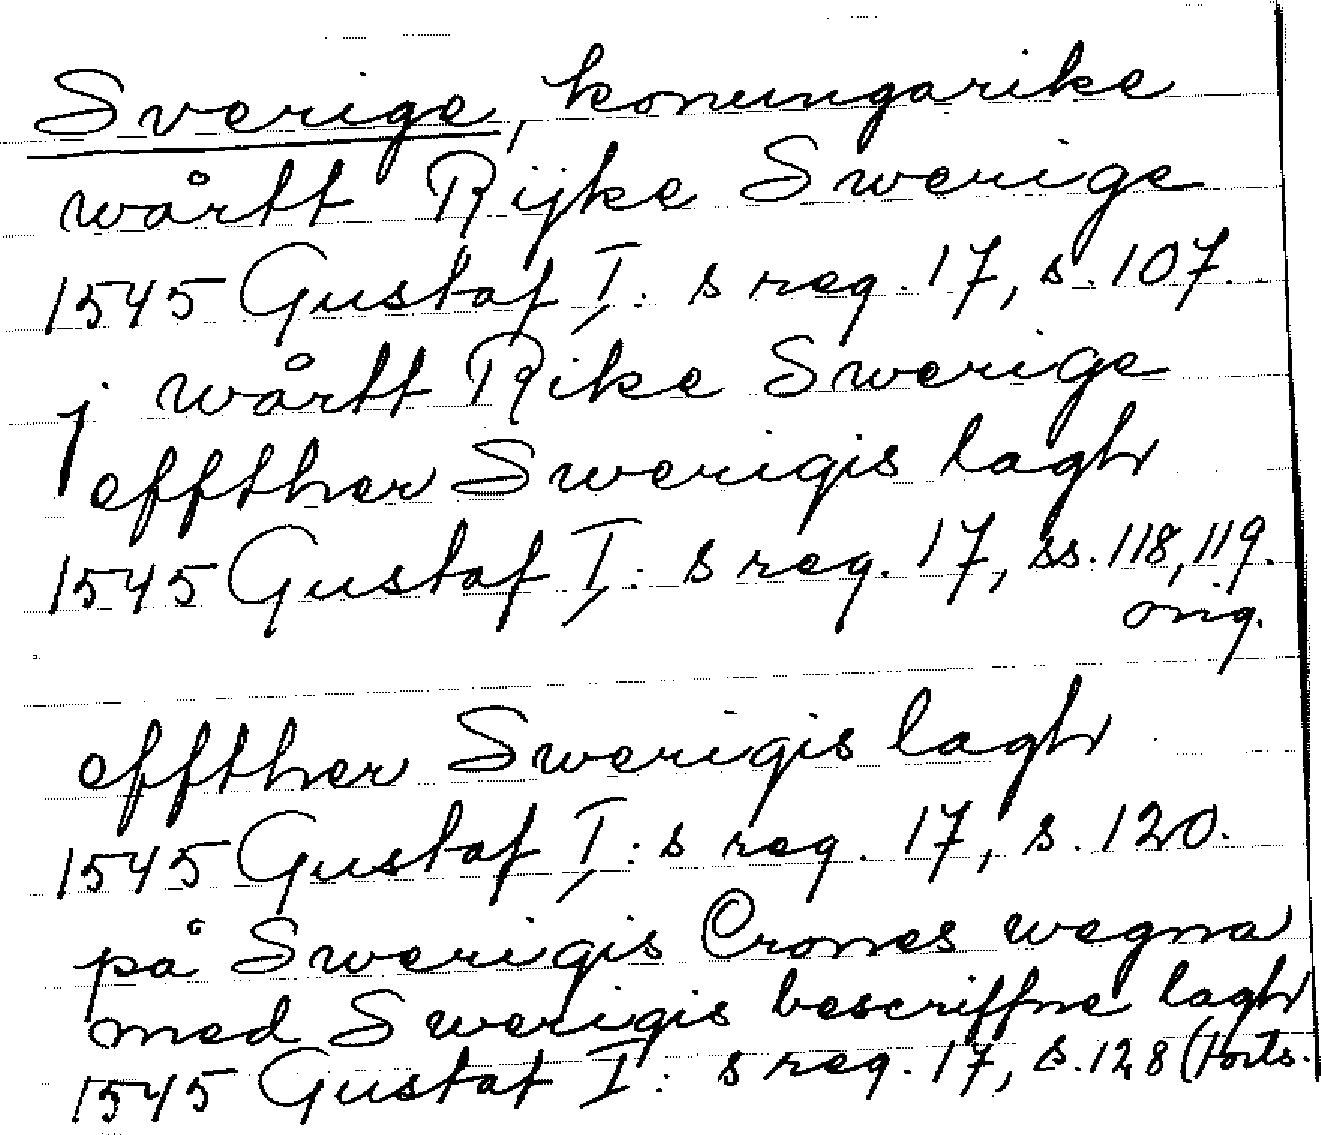 Sverige, konungarike
wårtt Rijke Swerige
1545 Gustaf I: s reg. 17, s. 107.
j wårtt Rike Swerige
effther Swerigis lagh
1545 Gustaf I: s reg. 17, ss. 118, 119.
orig.
effther Swerigis lagh
1545 Gustaf I: s reg. 17, s. 120.
på Swerigis Crones wegna
med Swerigis bescriffne lagh
1545 Gustaf I: s reg. 17, s. 128 (forts.